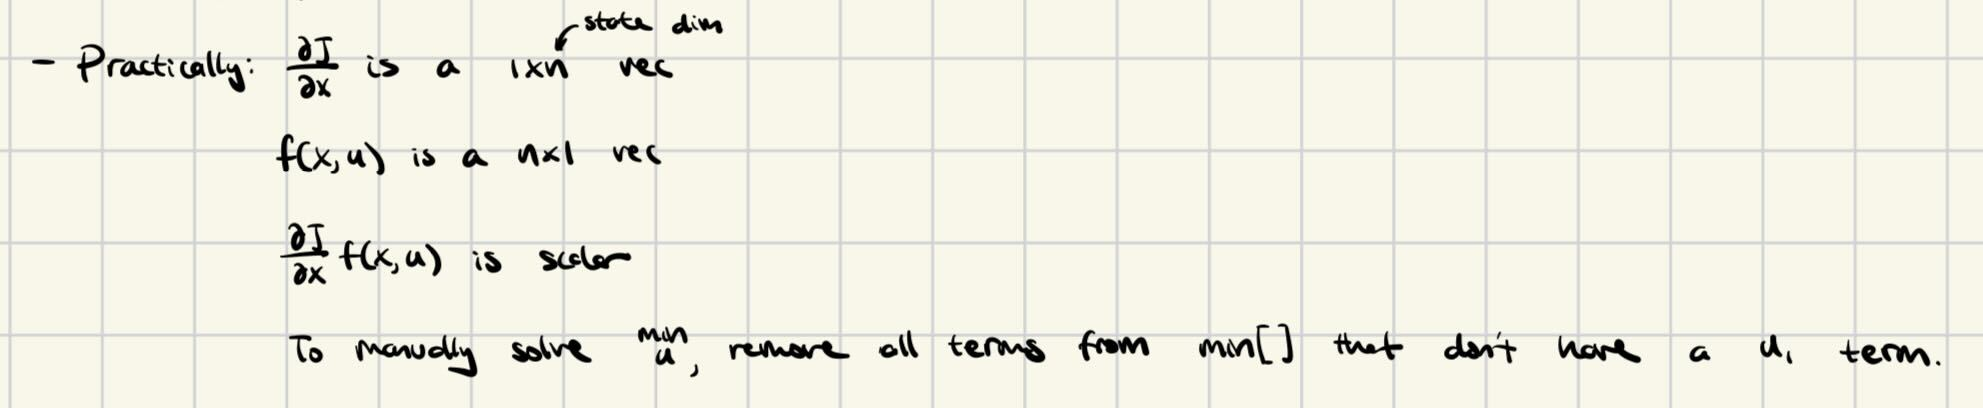 state dim
- Practically: ∂J/∂x is a 1xn vec
f(x,u) is a nx1 vec
∂J/∂x f(x,u) is scalar
To manually solve min u, remove all terms from min[] that don't have a u, term.